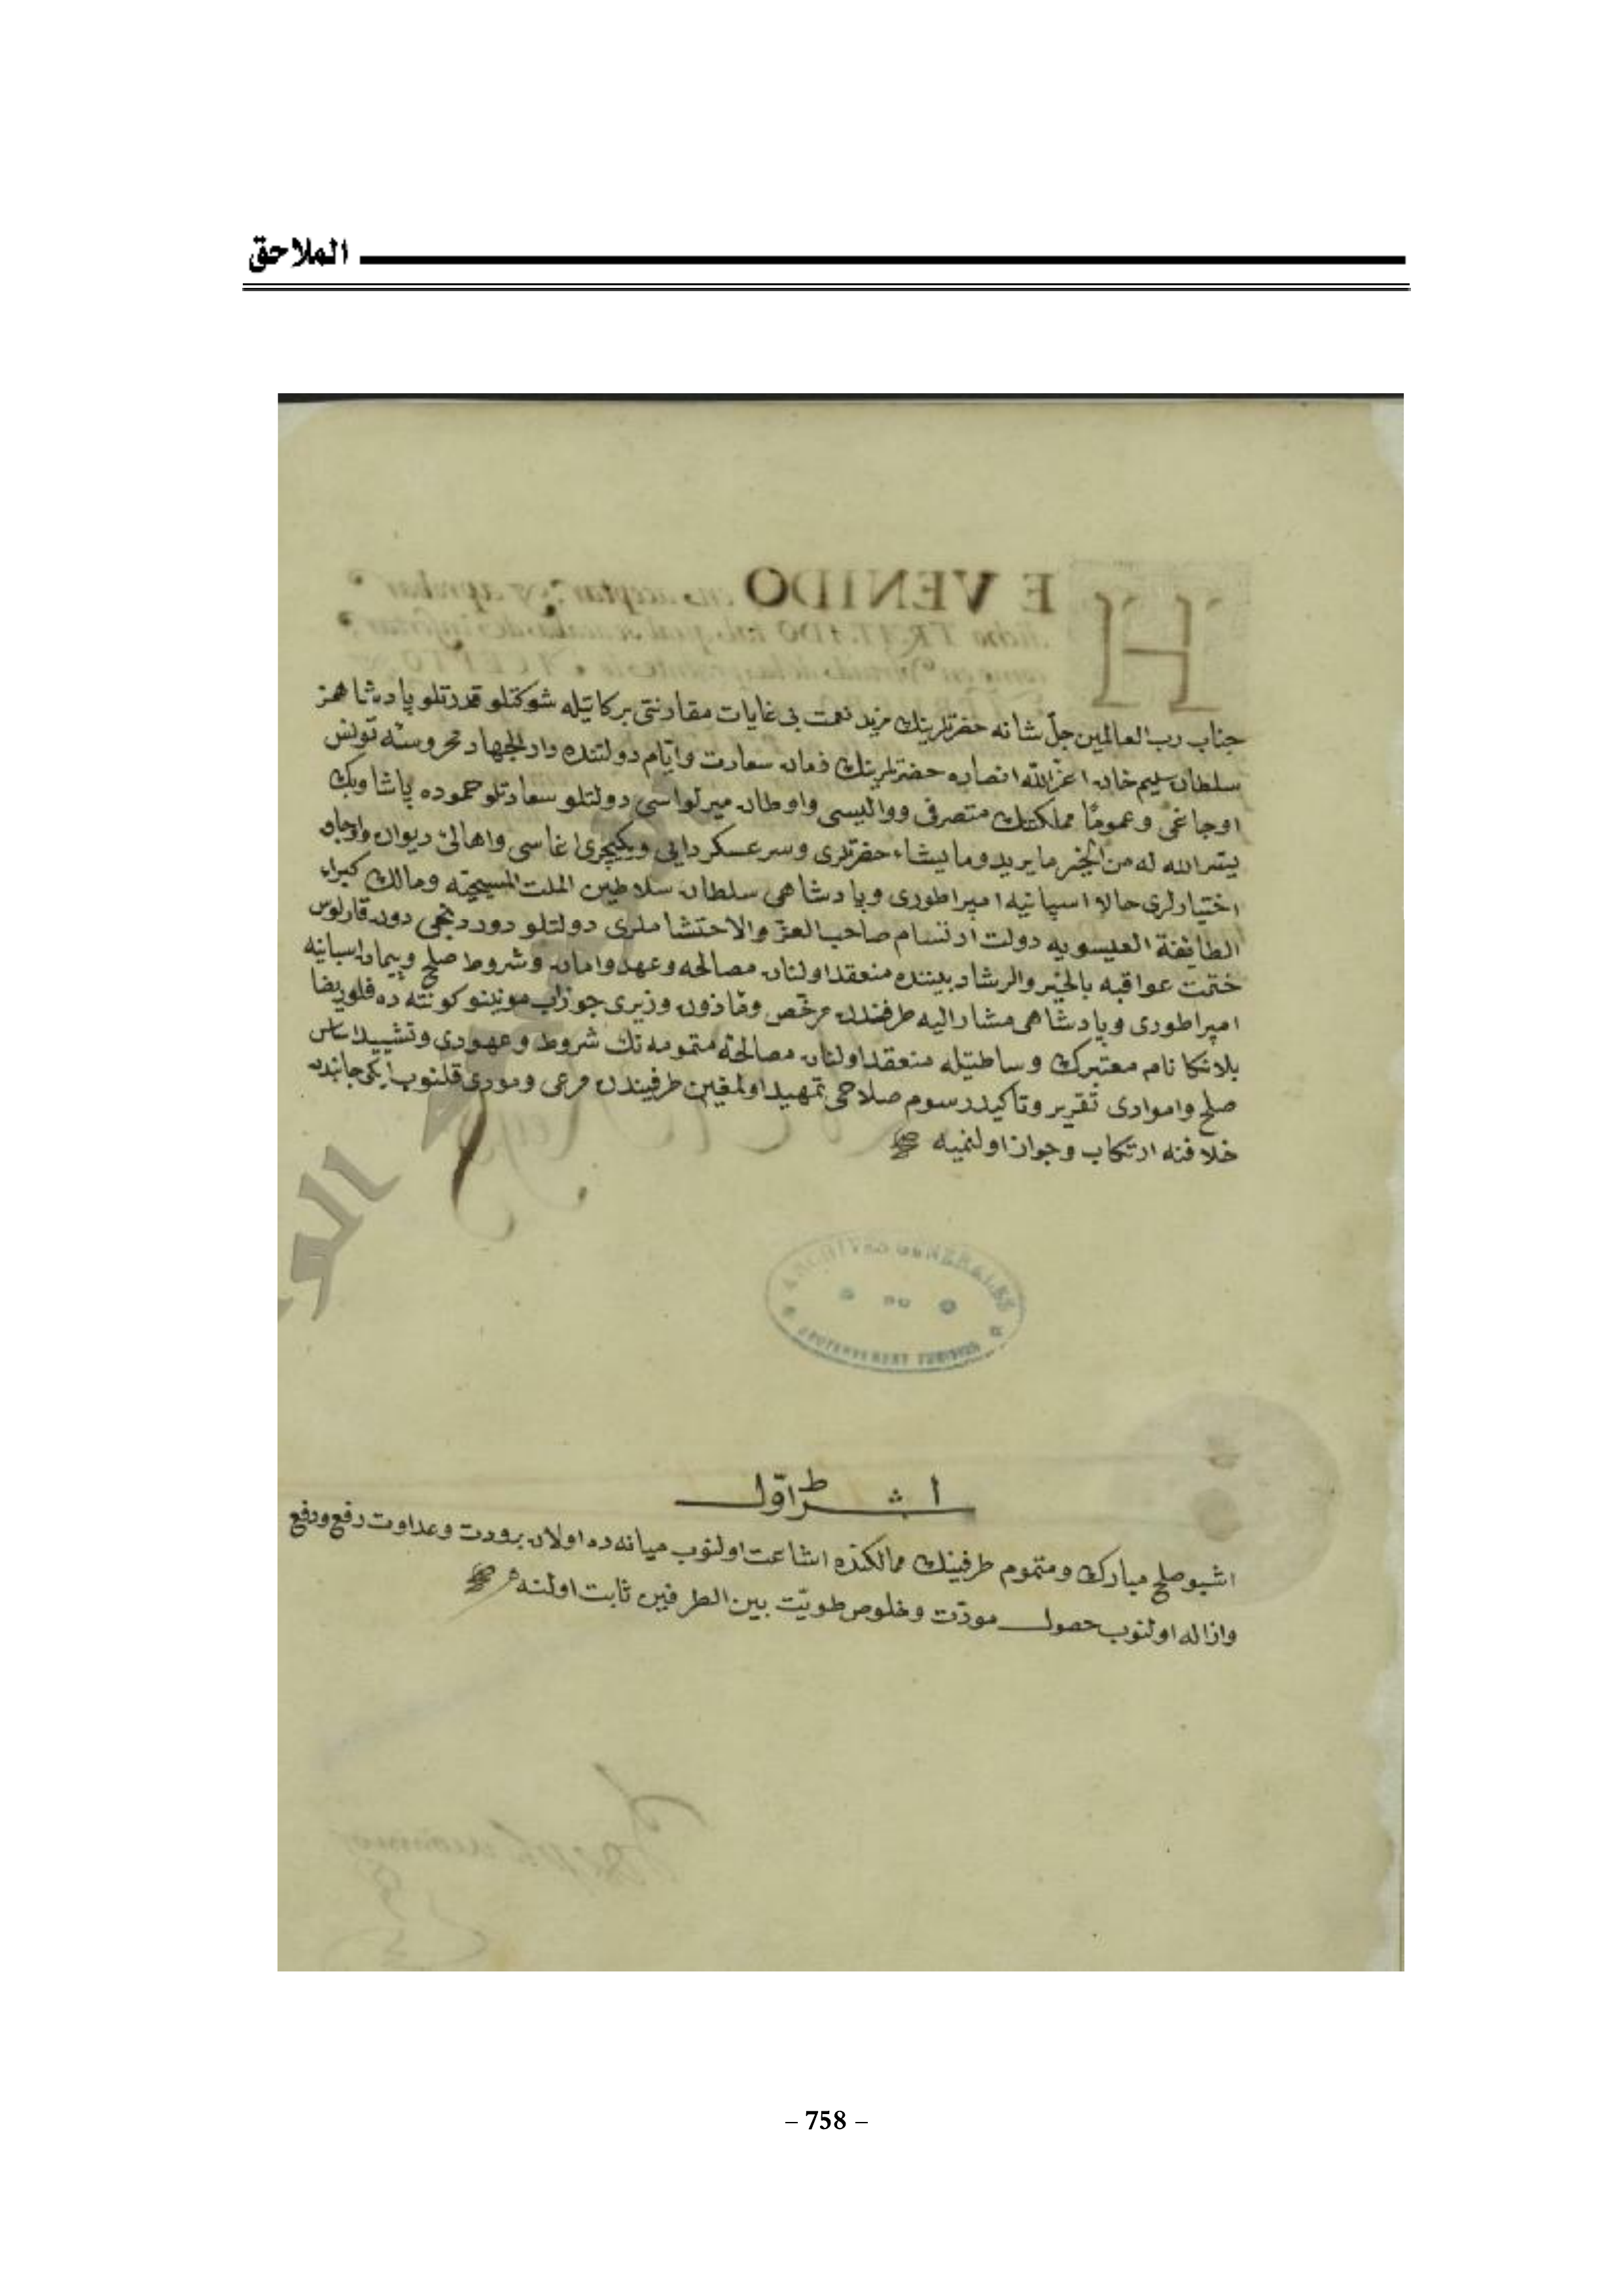 الملاحق
جناب رب العالمين جلّ شانه حضرتلرينك مزيد نعمت بى غايات مقارنتى بركاتيله شوكتلو قدرتلو پادشاهمز
سلطان سليم خان اعزّ الله انصاره حضرتلرينك زمان سعادت وايّام دولتنده دار الجهاد محروسهٔ تونس
اوجاغى وعمومًا مملكتنك متصرفى ووالیسى واوطان ميرلواسى دولتلو سعادتلو حموده پاشا وبك
يسّر الله له من الخير ما يريد وما يشاء حضرتلرى وسرعسكر دايى ويكيچرى اغاسى واهالئ ديوان واوجاق
اختيارلرى حالا اسپانيه امپراطورى وپادشاهى سلطان سلاطين الملت المسيحيّه ومالك كبراء
الطايفة العيسويه دولت ارتسام صاحب العزّ والاحتشاملرى دولتلو دوردنجى دون قارلوس
ختمت عواقبه بالخير والرشاد بيننده منعقد اولنان مصالحه وعهد وامان وشروط صلح وپيمان اسبانيه
امپراطورى وپادشاهى مشار اليه طرفندن مرخّص ومأذون وزيرى جوزاب مونينو كونته ده فلوريضا
بلانكا نام معتبرك وساطتيله منعقد اولنان مصالحهٔ متمومه نك شروط وعهودى وتشييد اساس
صلح وامورادى تقرير وتأكيد رسوم صلاحى تمهيد اولمغين طرفيندن مرعى ومودى قلنوب ايكى جانبدن
خلافنه ارتكاب وجواز اولنميه
ARCHIVES GENERALES
DU
GOUVERNEMENT TUNISIEN
اشرط اوّل
اشبو صلح مبارك ومتموم طرفينك ممالكنده اشاعت اولنوب ميانه ده اولان برودت وعداوت رفع ودفع
وازاله اولنوب حصول مودّت وخلوص طويّت بين الطرفين ثابت اولنه
– 758 –